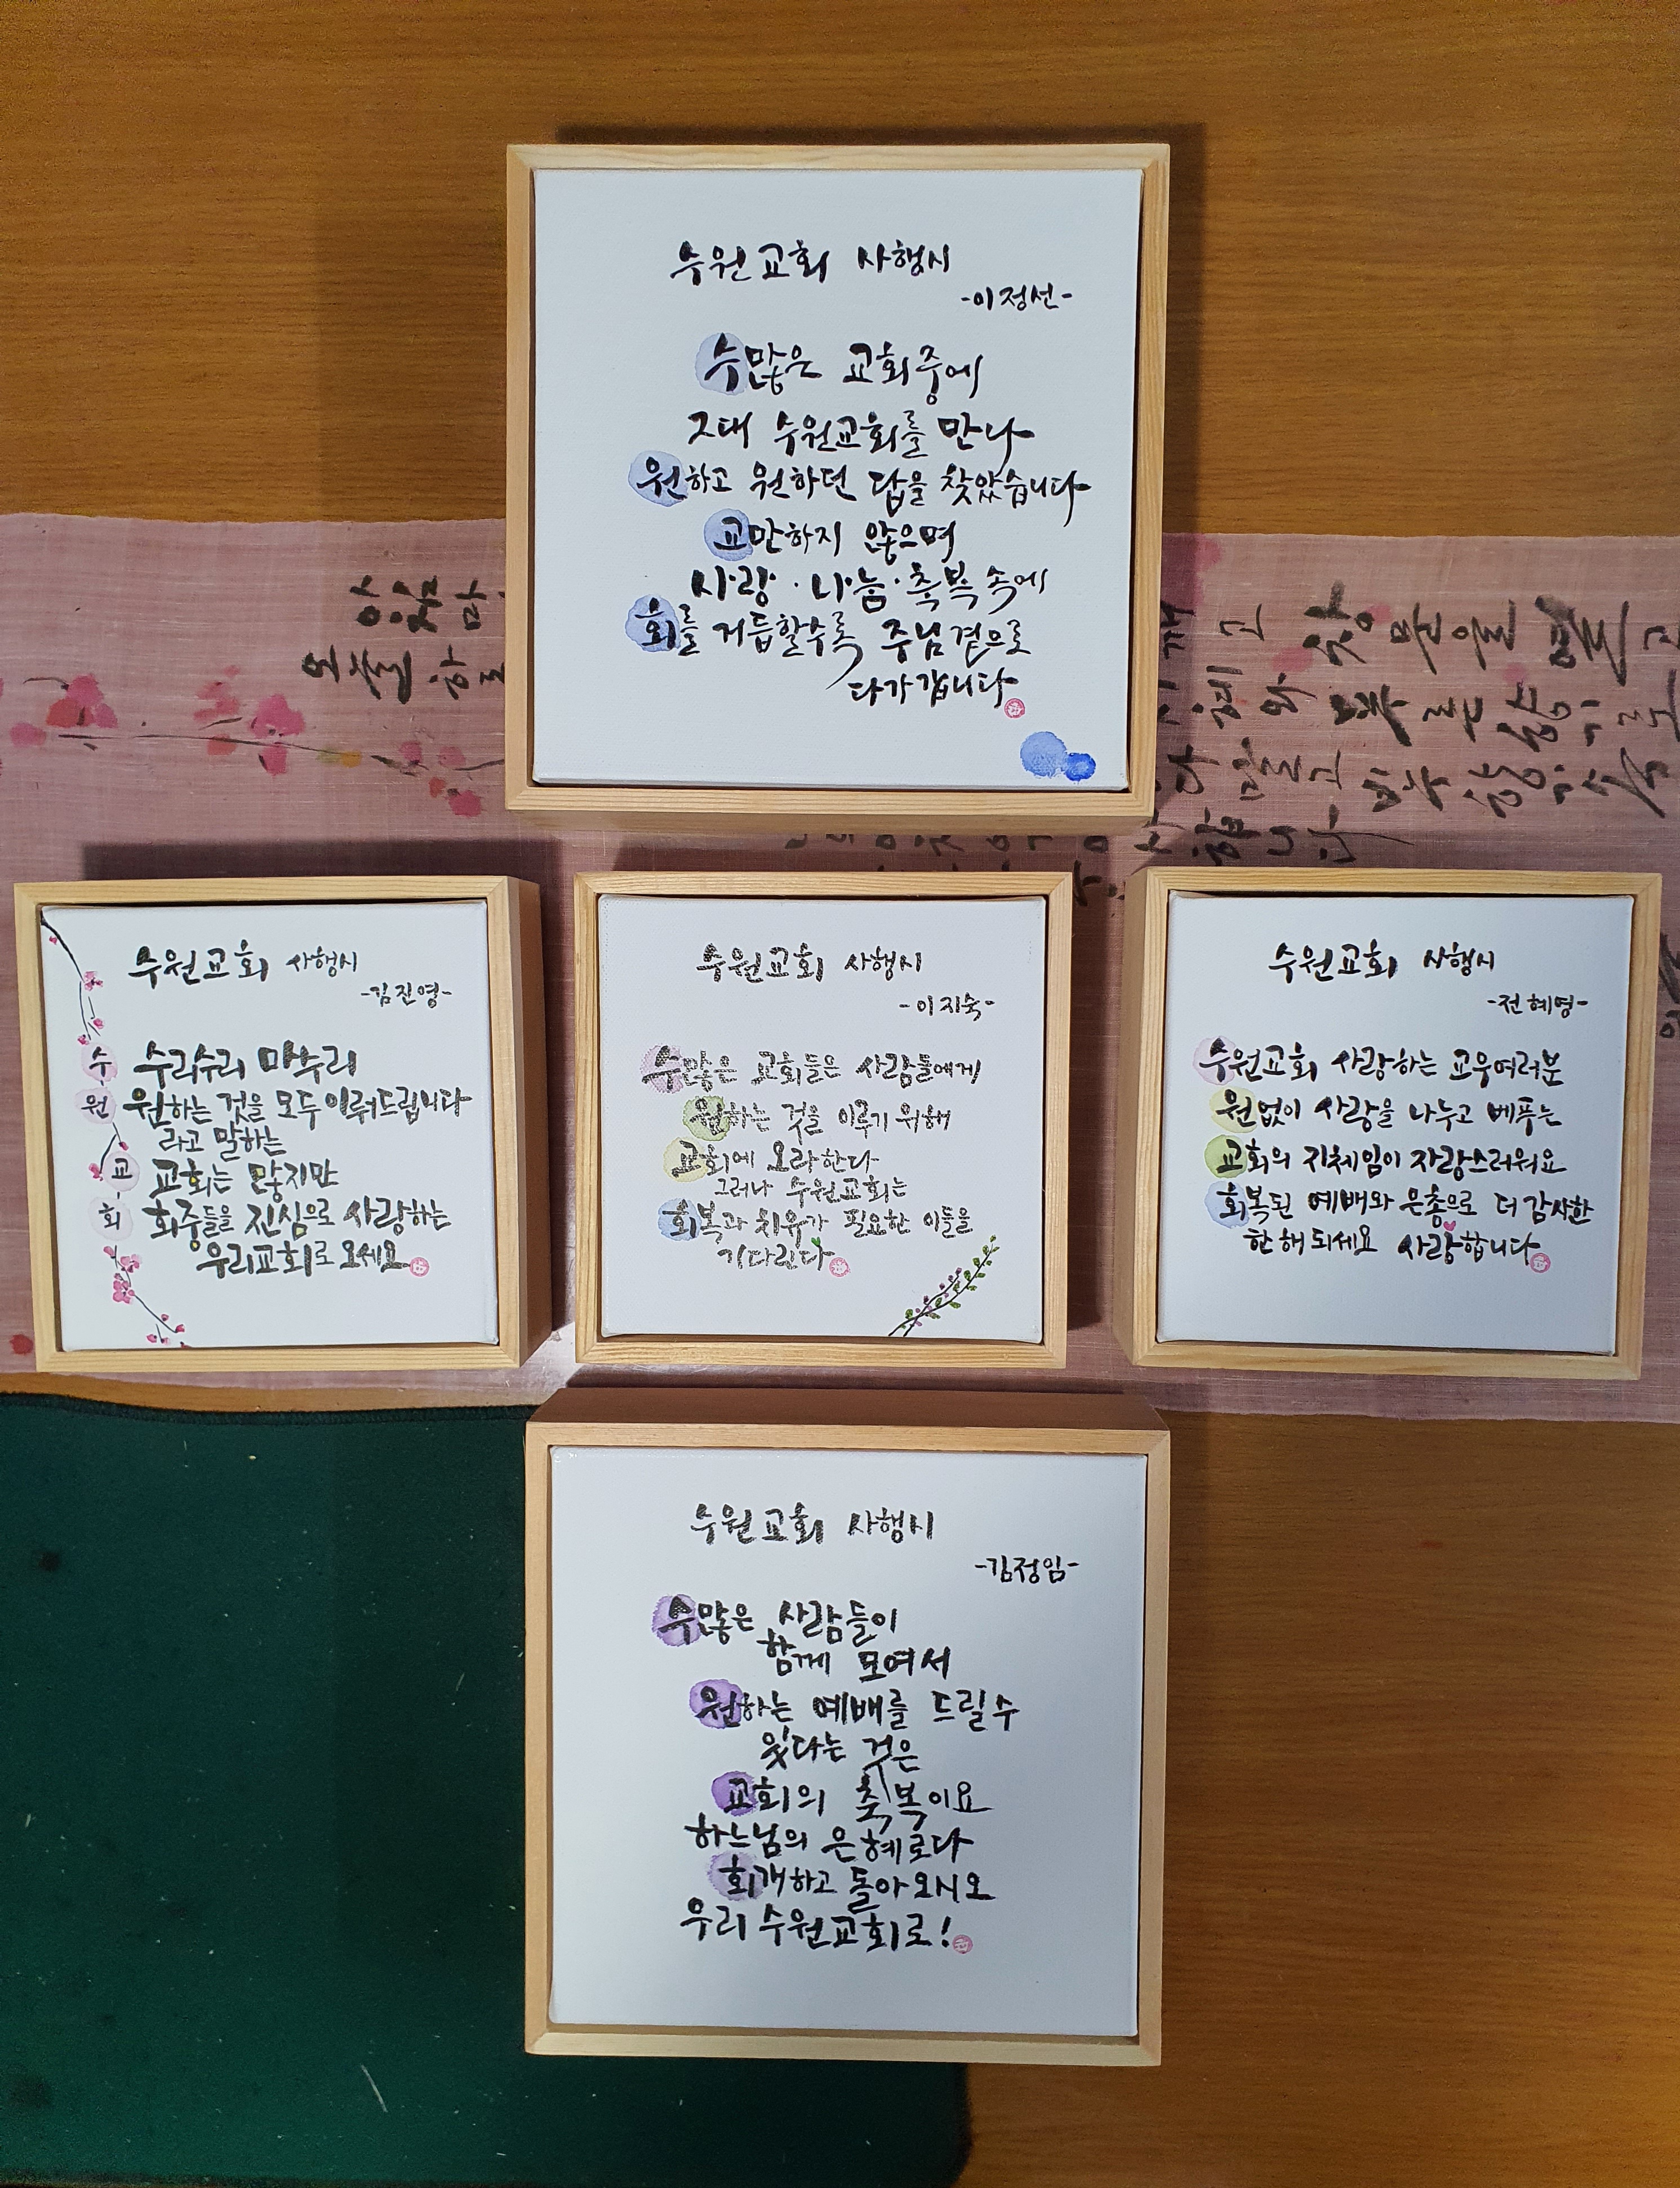 수원교회 사행시
-이정선-
수많은 교회중에
그대 수원교회를 만나
원하고 원하던 답을 찾았습니다
교만하지 않으며
사랑·나눔·축복 속에
회를 거듭할수록 주님 곁으로
다가갑니다
수원교회 사행시
-김진영-
수 수리수리 마수리
원 원하는 것을 모두 이뤄드립니다
라고 말하는
교 교회는 많지만
회 회중들을 진심으로 사랑하는
우리교회로 오세요
수원교회 사행시
-이지숙-
수많은 교회들은 사람들에게
원하는 것을 이루기 위해
교회에 오라한다
그러나 수원교회는
회복과 치유가 필요한 이들을
기다린다
수원교회 사행시
-전혜영-
수원교회 사랑하는 교우여러분
원없이 사랑을 나누고 베푸는
교회의 지체임이 자랑스러워요
회복된 예배와 은총으로 더 감사한
한 해 되세요 사랑합니다
수원교회 사행시
-김정임-
수많은 사람들이
함께 모여서
원하는 예배를 드릴수
있다는 것은
교회의 축복이요
하느님의 은혜로다
회개하고 돌아오시오
우리 수원교회로!